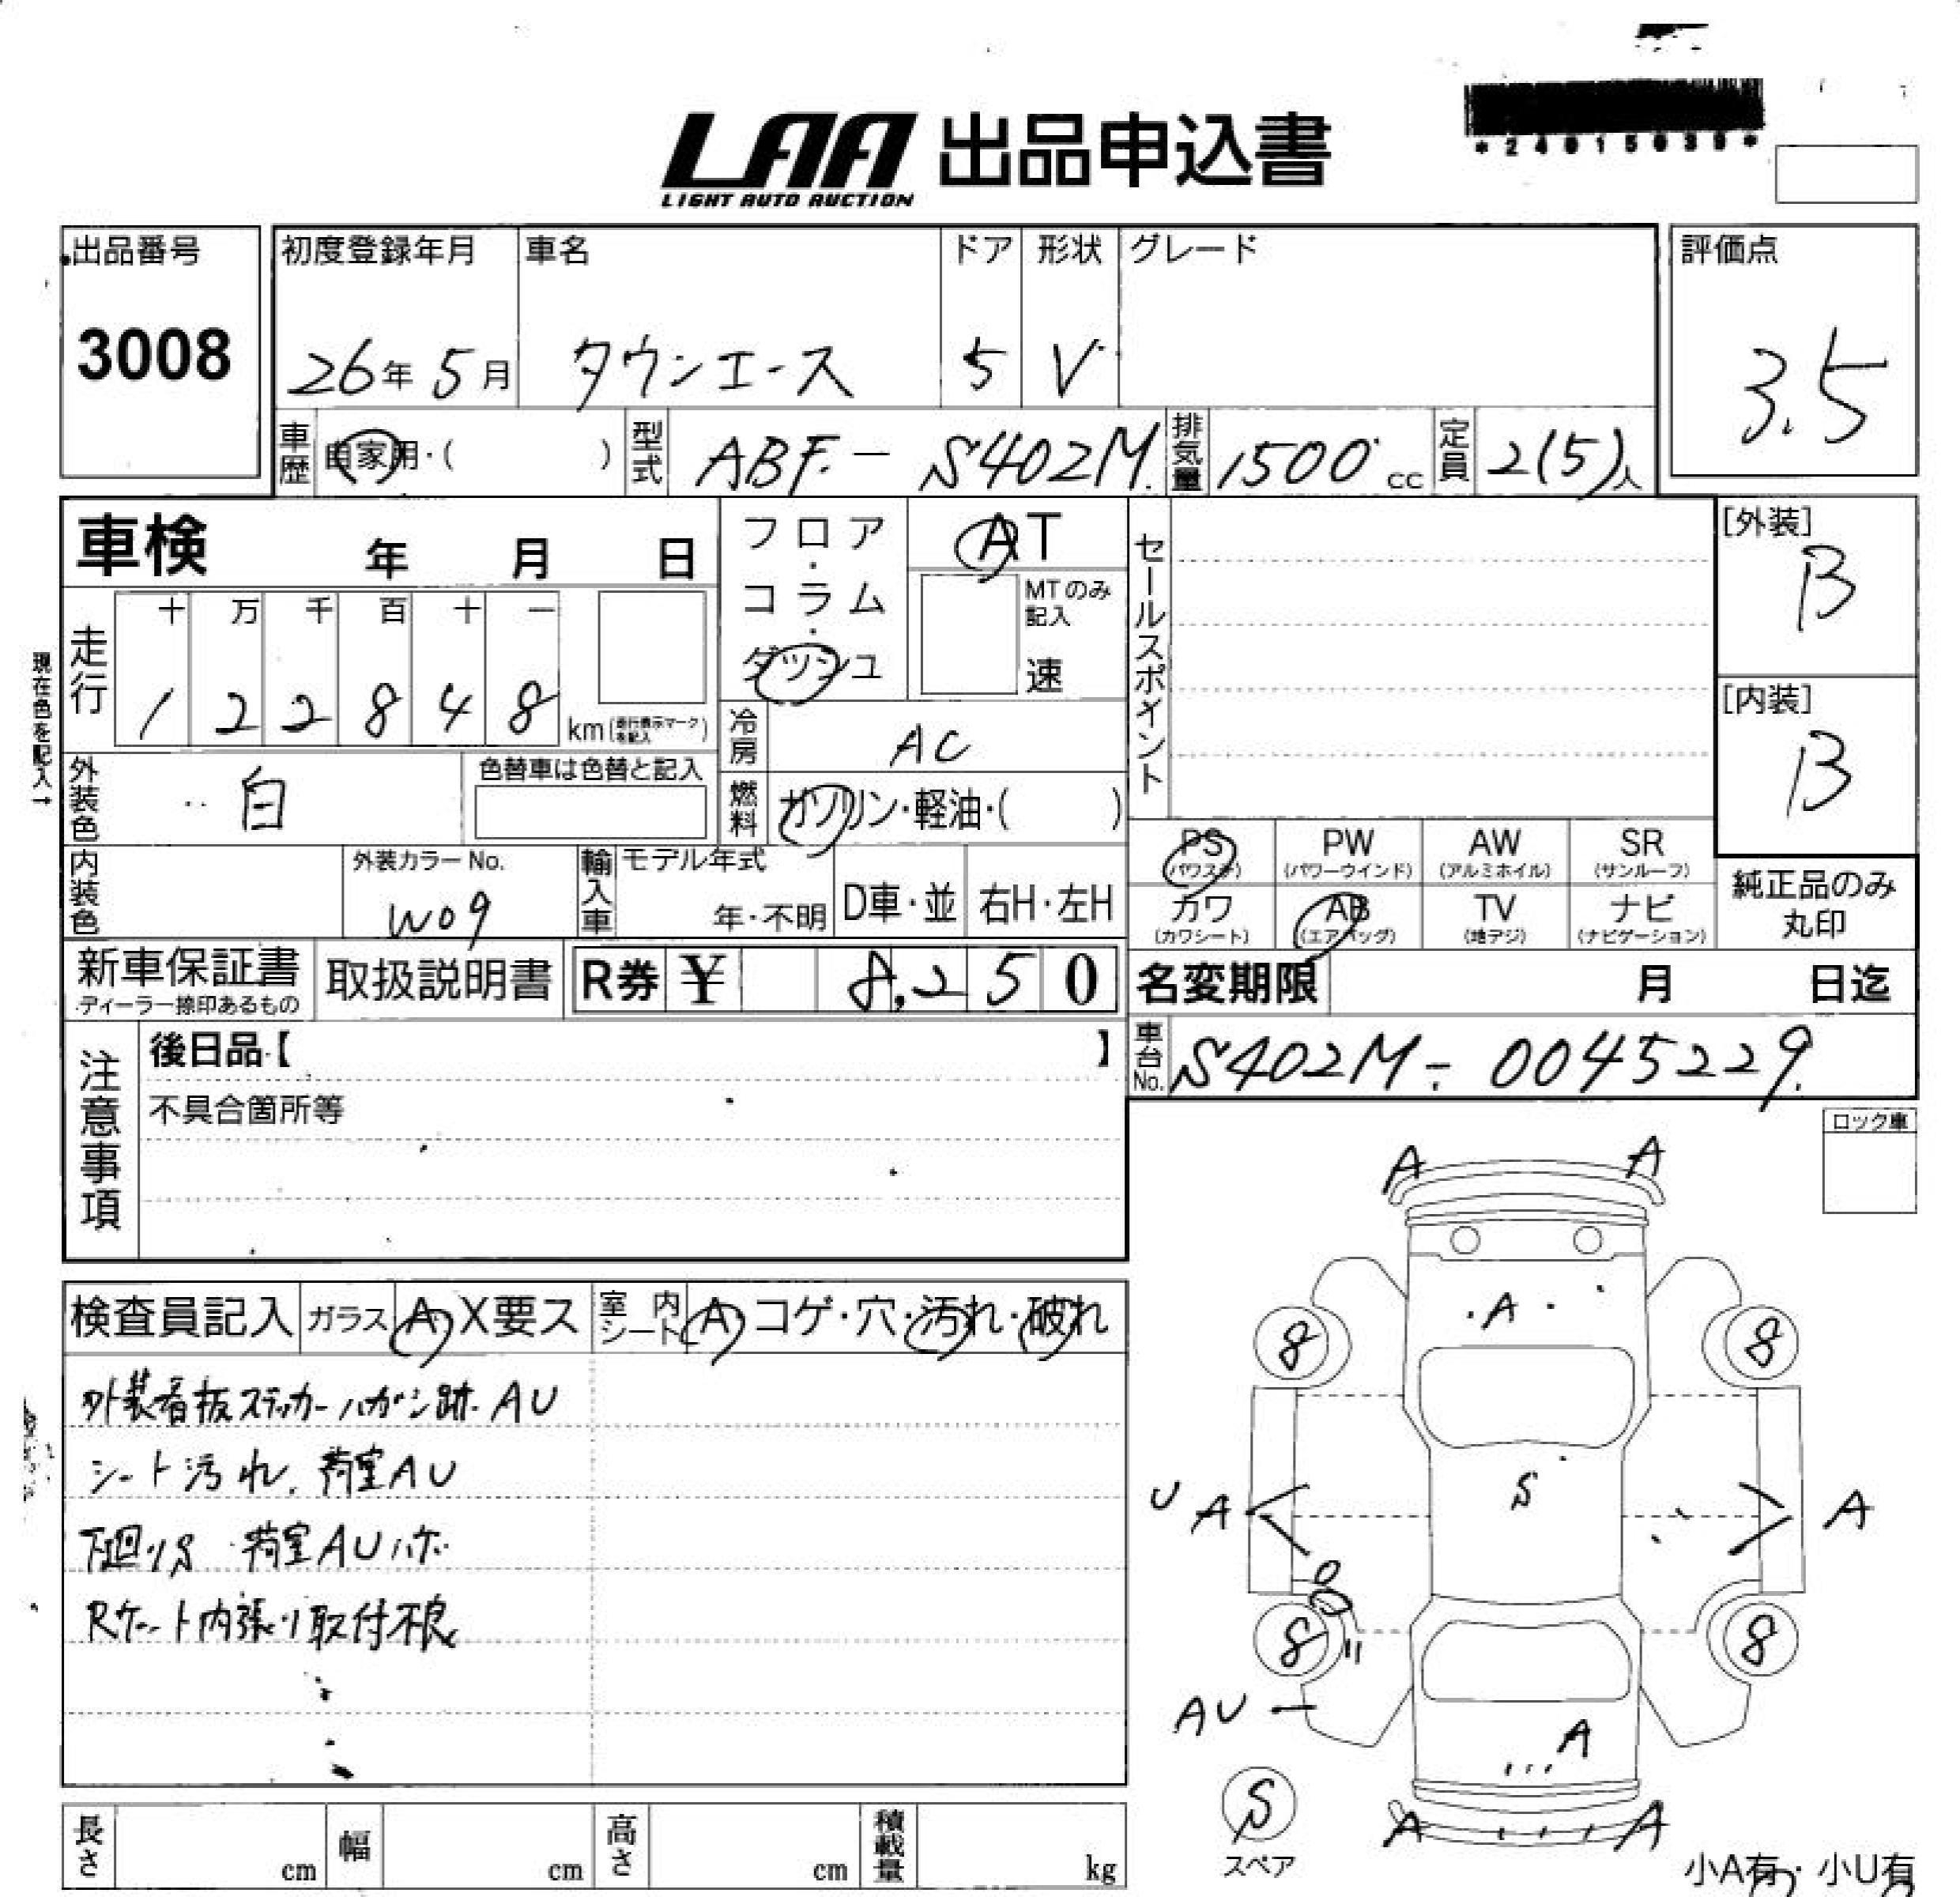 LAA 出品申込書
LIGHT AUTO AUCTION
*24015039*
出品番号
3008
初度登録年月
26年 5月
車名
タウンエース
ドア
5
形状
V
グレード
評価点
3.5
車歴 自家用・( )
型式 ABF-S402M
排気量 1500 cc
定員 2(5)人
車検 年 月 日
フロア・コラム・ダッシュ
AT
MTのみ記入
速
セールスポイント
[外装]
B
[内装]
B
現在色を記入→
走行
十 万 千 百 十 一
1 2 2 8 4 8 km(走行表示マークを記入)
冷房 AC
外装色 白
色替車は色替と記入
燃料 ガソリン・軽油・( )
PS (パワステ)
PW (パワーウインド)
AW (アルミホイル)
SR (サンルーフ)
カワ (カワシート)
AB (エアバッグ)
TV (地デジ)
ナビ (ナビゲーション)
純正品のみ
丸印
内装色
外装カラーNo.
W09
輸入車
モデル年式
年・不明
D車・並
右H・左H
新車保証書
ディーラー捺印あるもの
取扱説明書
R券 ¥ 8,250
名変期限 月 日迄
車台No. S402M-0045229
注意事項
後日品【 】
不具合箇所等
ロック車
検査員記入
ガラス A・X要ス
室内シート A・コゲ・穴・汚れ・破れ
外装看板ステッカーハガシ跡 AU
シート汚れ、荷室AU
下廻りS 荷室AUハゲ
Rゲート内張り取付不良
A A
A
8 8
S
U A A
8 8
AU
A
S
スペア
A A
小A有・小U有
長さ cm
幅 cm
高さ cm
積載量 kg